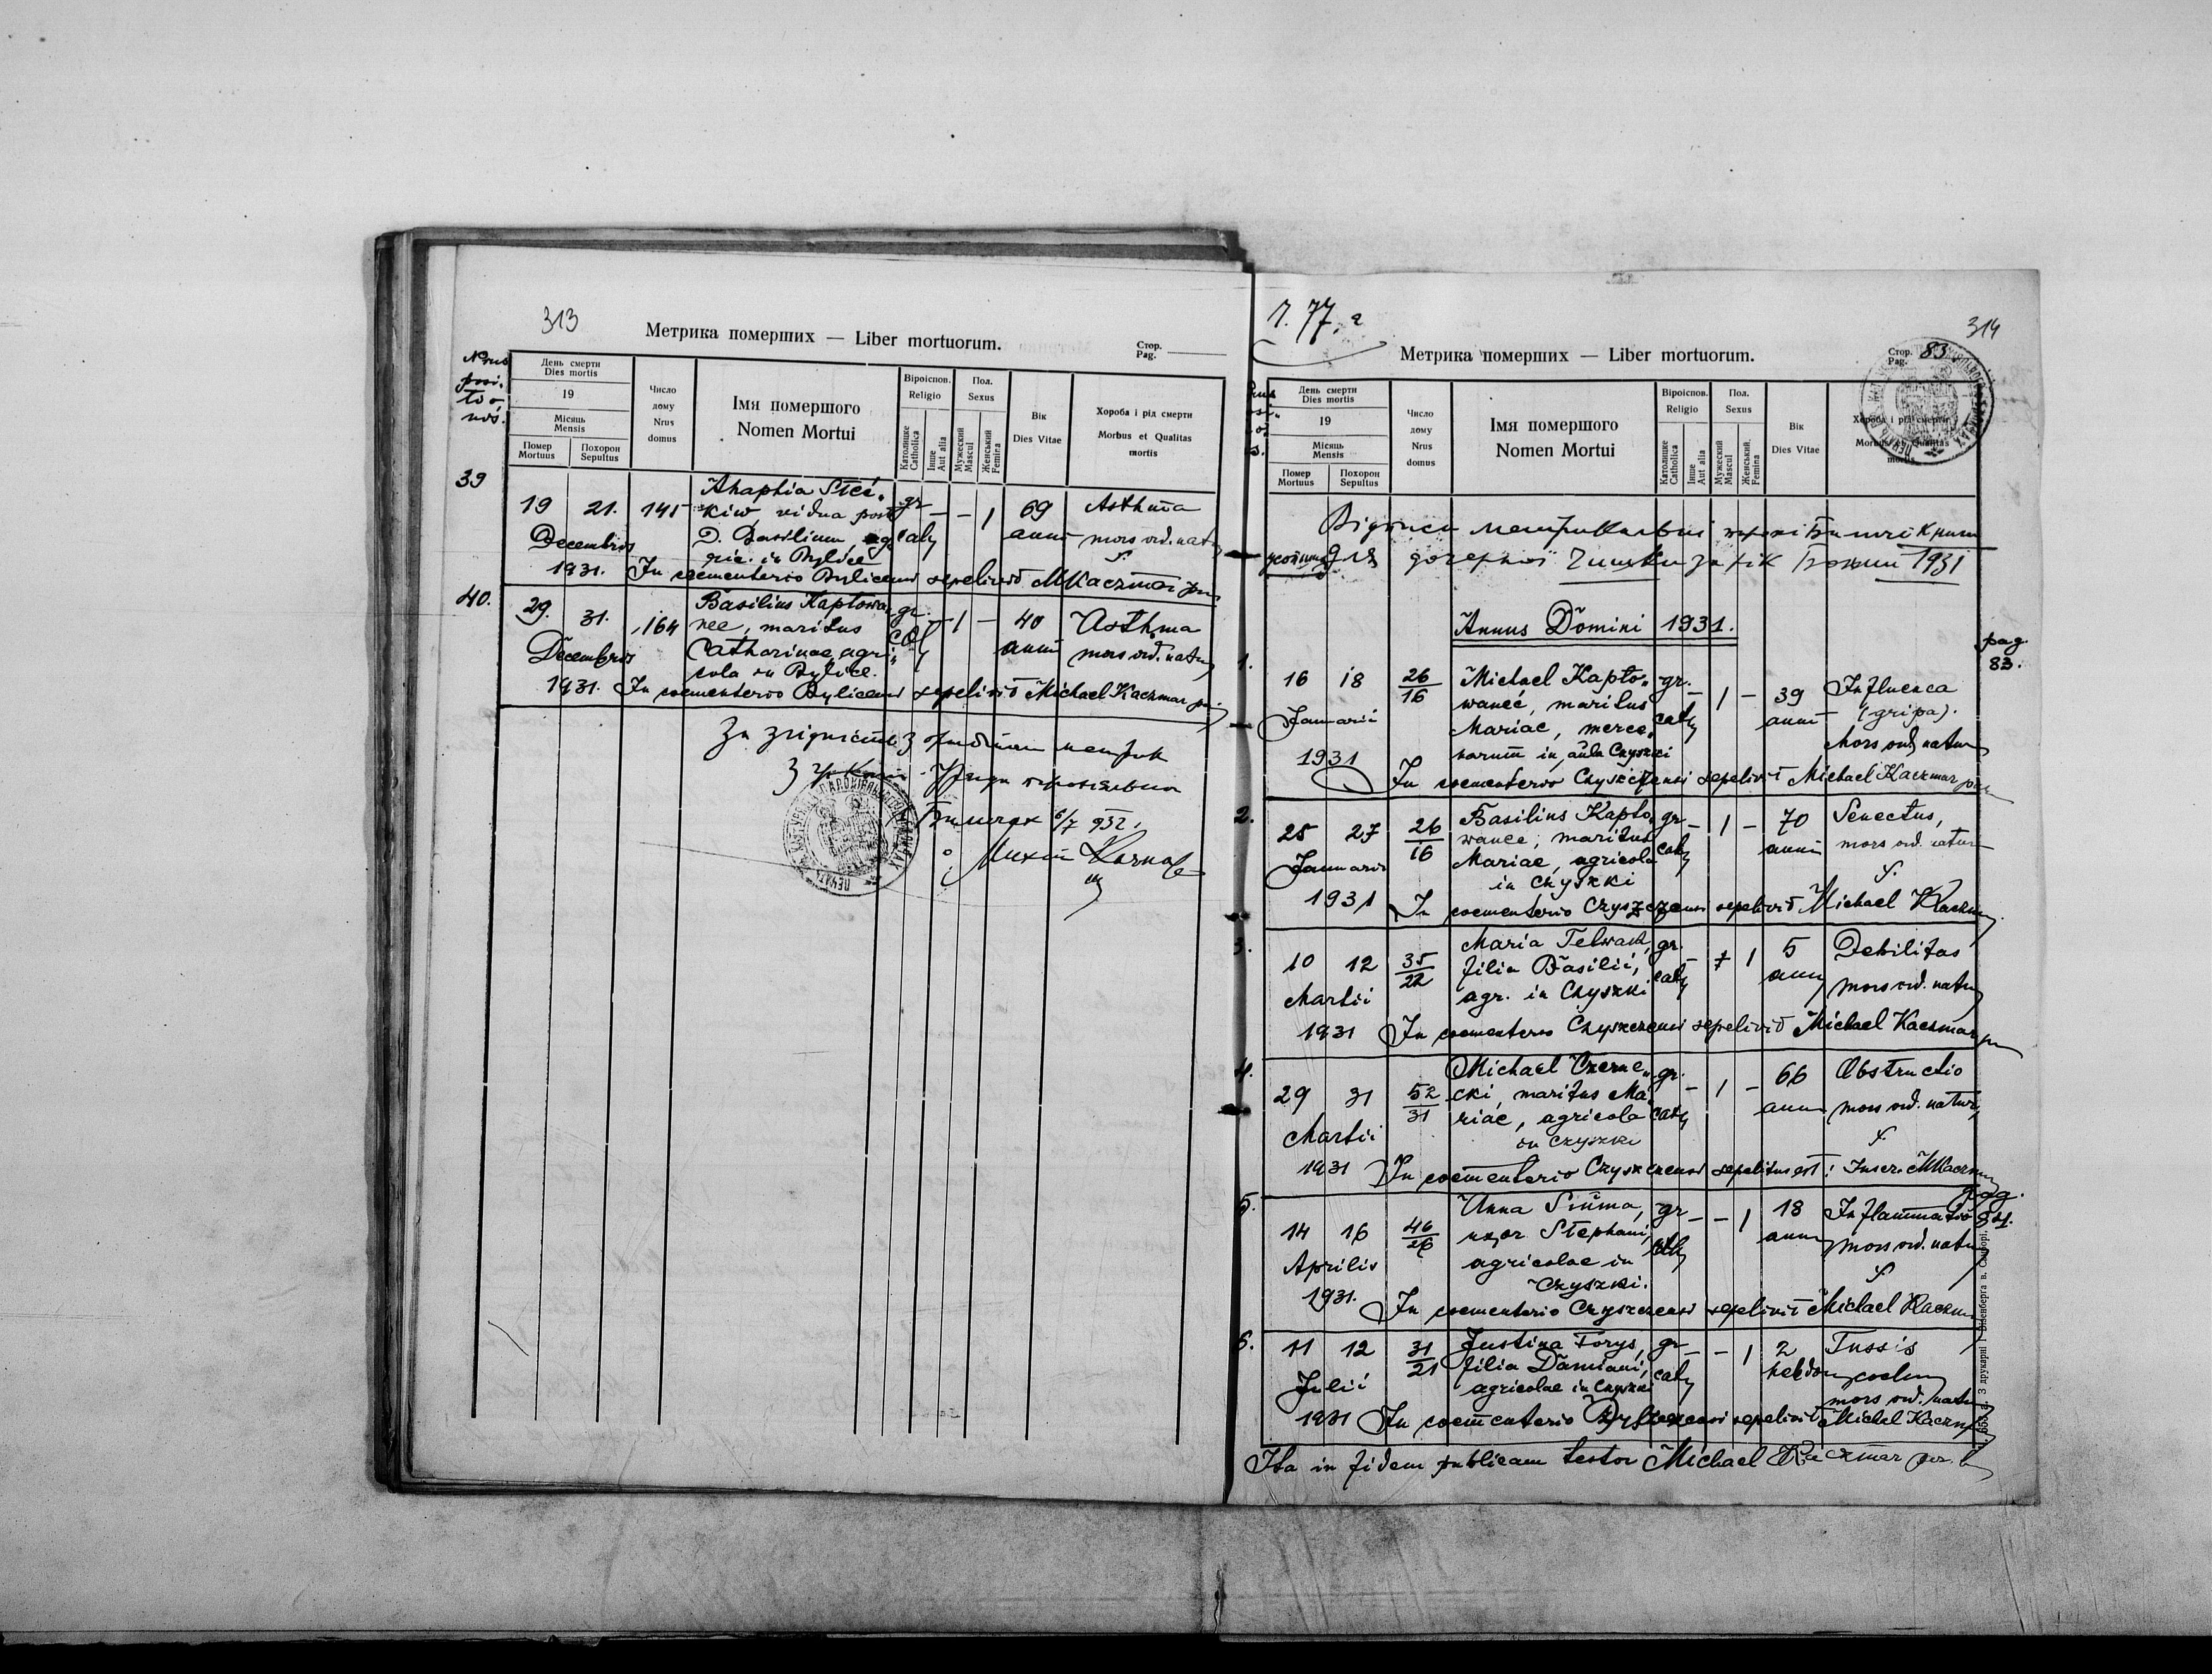 313
Метрика померших — Liber mortuorum.
Стор.
Pag.
Nrus
posi-
tio-
nis.
День смерти
Dies mortis
19
Місяць
Mensis
Помер
Mortuus
Похорон
Sepultus
Число
дому
Nrus
domus
Імя помершого
Nomen Mortui
Віроіспов.
Religio
Католицке
Catholica
Інше
Aut alia
Пол.
Sexus
Мужеский
Mascul
Женський
Femina
Вік
Dies Vitae
Хороба і рід смерти
Morbus et Qualitas
mortis
39
19 21. 145 Ahaphia Steć-
kiw vidua post
D. Basilium, ag
ric. in Bylice
gr. cath. - - 1 69 anni Asthma
mors ord. natur
Decembris
1931. In coementerio Bylicensi sepelivit MKaczmar
40.
29. 31. 164 Basilius Kaptowa
nec, maritus
Catharinae, agri-
cola in Bylice.
gr. cath - 1 - 40 anni Asthma
mors ord. natur
Decembris
1931. In coementerio Bylicensi sepelivit Michael Kaczmar
За згідність з
метрик
З Уряду
Биличах 6/7 932.
314
Ч. 77.
Метрика померших — Liber mortuorum.
Стор.
Pag. 83
День смерти
Dies mortis
19
Місяць
Mensis
Помер
Mortuus
Похорон
Sepultus
Число
дому
Nrus
domus
Імя помершого
Nomen Mortui
Віроіспов.
Religio
Католицке
Catholica
Інше
Aut alia
Пол.
Sexus
Мужеский
Mascul
Женський.
Femina
Вік
Dies Vitae
Хороба і рід смерти
Morbus et Qualitas
mortis
Відписи метрикальні
для дочерної Чишки за рік Божий 1931
Annus Domini 1931.
pag.
83.
1.
16 18 26/16 Michael Kapto-
waneć, maritus
Mariae, merce-
narum in aula Czyszki
gr. cath - 1 - 39 anni Influenca
(gripa).
Mors ord natur
Januarii
1931
In coementerio Czyszczensi sepelivit Michael Kaczmar
2.
25 27 26/16 Basilius Kapto-
wanec, maritus
Mariae, agricola
in Czyszki
gr cath - 1 - 70 anni Senectus,
mors ord. natur
Januarii
1931
In coementerio Czyszczensi sepelivit Michael Kaczmar
3.
10 12 35/22 Maria Telwach,
filia Basilii,
agr. in Czyszki
gr. cath - 1 5 anni Debilitas
mors ord. natur
Martii
1931 In coementerio Czyszczensi sepelivit Michael Kaczmar
4.
29 31 52/31 Michael Czerne-
cki, maritus Ma-
riae, agricola
in Czyszki
gr. cath - 1 - 66 anni Obstructio
mors ord. natur
Martii
1931 In coementerio Czyszczensi sepelitus est: Inscr. MKaczmar
pag.
84.
5.
14 16 46/26 Anna Smuma,
uxor Stephani,
agricolae in
Czyszki.
gr cath - - 1 18 anni Inflammatio
mors ord. natur
Aprilis
1931.
In coementerio Czyszczensi sepelivit Michael Kaczmar
6.
11 12 31/21 Justina Forys,
filia Damiani,
agricolae in Czyszki
gr cath - - 1 2 hebdom Tussis
mors ord. natur
Julii
1931 In coementerio Czyszczensi sepelivit Michael Kaczmar
Ita in fidem publicam testor Michael Kaczmar